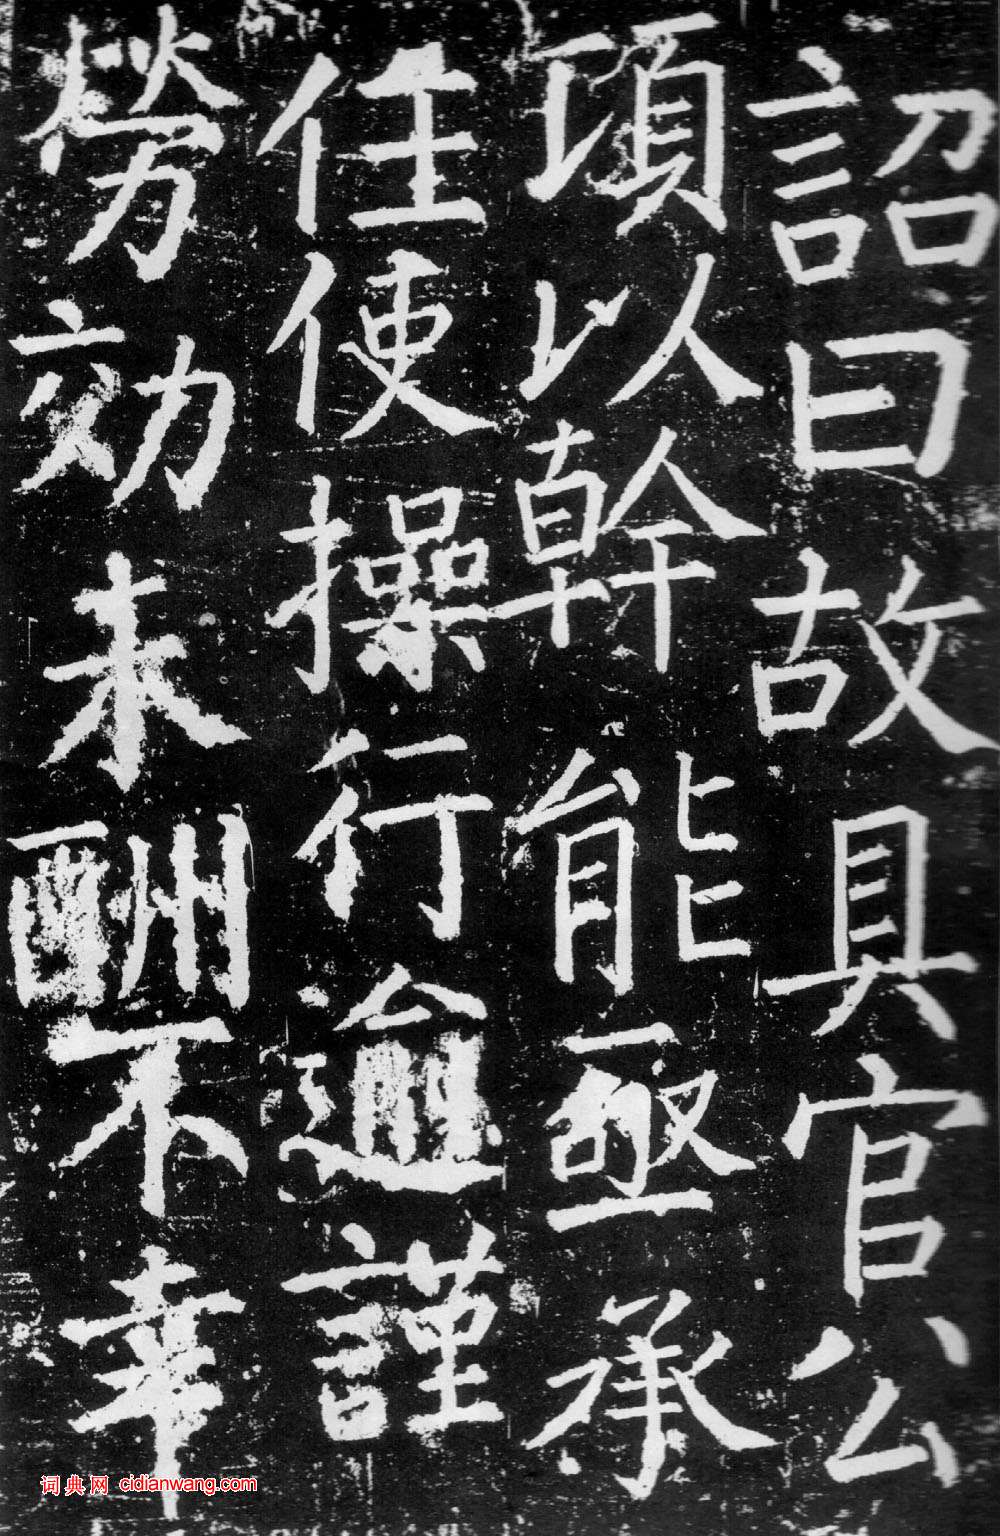 詔曰故具官公
頃以幹能亟承
任使操行逾謹
勞効未酬不幸
词典网 cidianwang.com